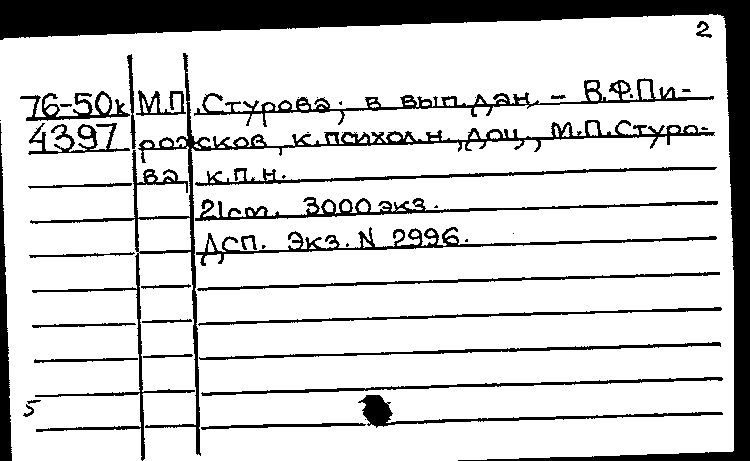 2
76-50к М.П.Стурова; в вып.дан. – В.Ф.Пи-
4397 рожков, к.психол.н.,доц., М.П.Стуро-
ва, к.п.н.
21cm. 3000 экз.
ДСП. Экз. N 2996.
5